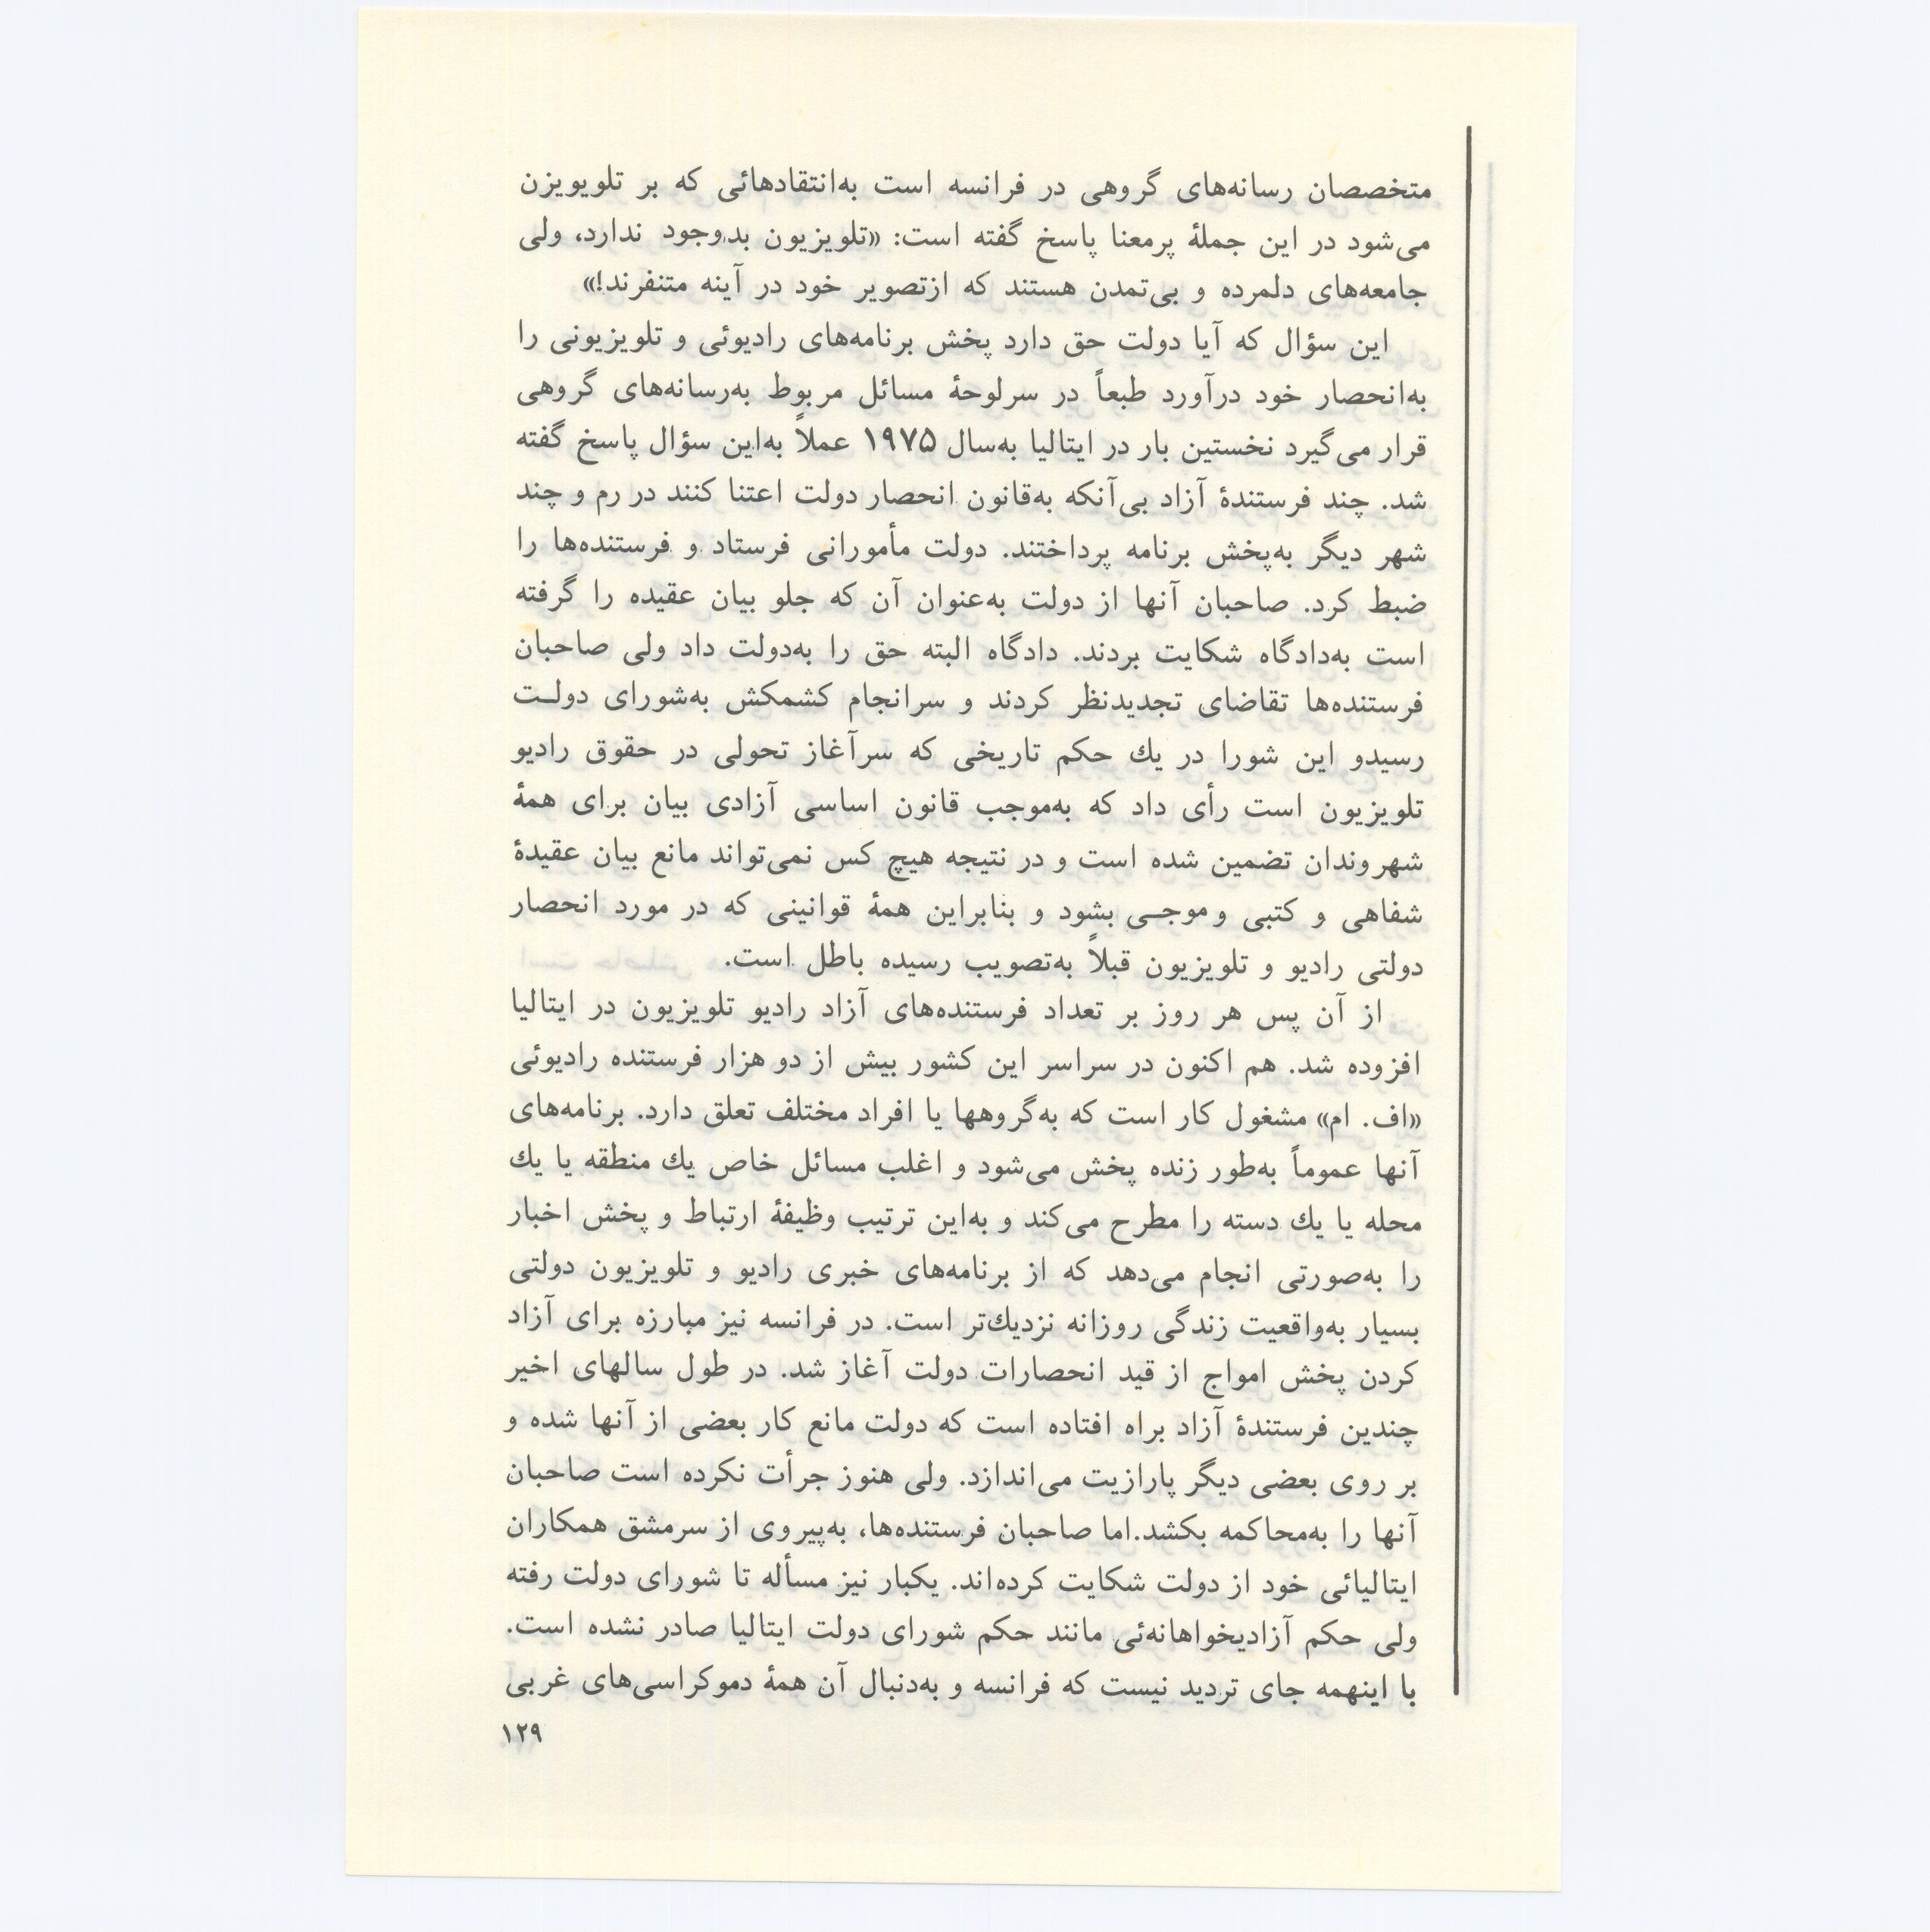 متخصصان رسانه‌های گروهی در فرانسه است به‌انتقادهائی که بر تلویویزن
می‌شود در این جملهٔ پرمعنا پاسخ گفته است: «تلویزیون بدوجود ندارد، ولی
جامعه‌های دلمرده و بی‌تمدن هستند که ازتصویر خود در آینه متنفرند!»
این سؤال که آیا دولت حق دارد پخش برنامه‌های رادیوئی و تلویزیونی را
به‌انحصار خود درآورد طبعاً در سرلوحهٔ مسائل مربوط به‌رسانه‌های گروهی
قرار می‌گیرد نخستین بار در ایتالیا به‌سال ۱۹۷۵ عملاً به‌این سؤال پاسخ گفته
شد. چند فرستندهٔ آزاد بی‌آنکه به‌قانون انحصار دولت اعتنا کنند در رم و چند
شهر دیگر به‌پخش برنامه پرداختند. دولت مأمورانی فرستاد و فرستنده‌ها را
ضبط کرد. صاحبان آنها از دولت به‌عنوان آن که جلو بیان عقیده را گرفته
است به‌دادگاه شکایت بردند. دادگاه البته حق را به‌دولت داد ولی صاحبان
فرستنده‌ها تقاضای تجدیدنظر کردند و سرانجام کشمکش به‌شورای دولـت
رسیدو این شورا در یك حکم تاریخی که سرآغاز تحولی در حقوق رادیو
تلویزیون است رأی داد که به‌موجب قانون اساسی آزادی بیان برای همهٔ
شهروندان تضمین شده است و در نتیجه هیچ کس نمی‌تواند مانع بیان عقیدهٔ
شفاهی و کتبی و موجـی بشود و بنابراین همهٔ قوانینی که در مورد انحصار
دولتی رادیو و تلویزیون قبلاً به‌تصویب رسیده باطل است.
از آن پس هر روز بر تعداد فرستنده‌های آزاد رادیو تلویزیون در ایتالیا
افزوده شد. هم اکنون در سراسر این کشور بیش از دو هزار فرستنده رادیوئی
«اف. ام» مشغول کار است که به‌گروهها یا افراد مختلف تعلق دارد. برنامه‌های
آنها عموماً به‌طور زنده پخش می‌شود و اغلب مسائل خاص یك منطقه یا یك
محله یا یك دسته را مطرح می‌کند و به‌این ترتیب وظیفهٔ ارتباط و پخش اخبار
را به‌صورتی انجام می‌دهد که از برنامه‌های خبری رادیو و تلویزیون دولتی
بسیار به‌واقعیت زندگی روزانه نزدیك‌تر است. در فرانسه نیز مبارزه برای آزاد
کردن پخش امواج از قید انحصارات دولت آغاز شد. در طول سالهای اخیر
چندین فرستندهٔ آزاد براه افتاده است که دولت مانع کار بعضی از آنها شده و
بر روی بعضی دیگر پارازیت می‌اندازد. ولی هنوز جرأت نکرده است صاحبان
آنها را به‌محاکمه بکشد.اما صاحبان فرستنده‌ها، به‌پیروی از سرمشق همکاران
ایتالیائی خود از دولت شکایت کرده‌اند. یکبار نیز مسأله تا شورای دولت رفته
ولی حکم آزادیخواهانه‌ئی مانند حکم شورای دولت ایتالیا صادر نشده است.
با اینهمه جای تردید نیست که فرانسه و به‌دنبال آن همهٔ دموکراسی‌های غربی
۱۲۹